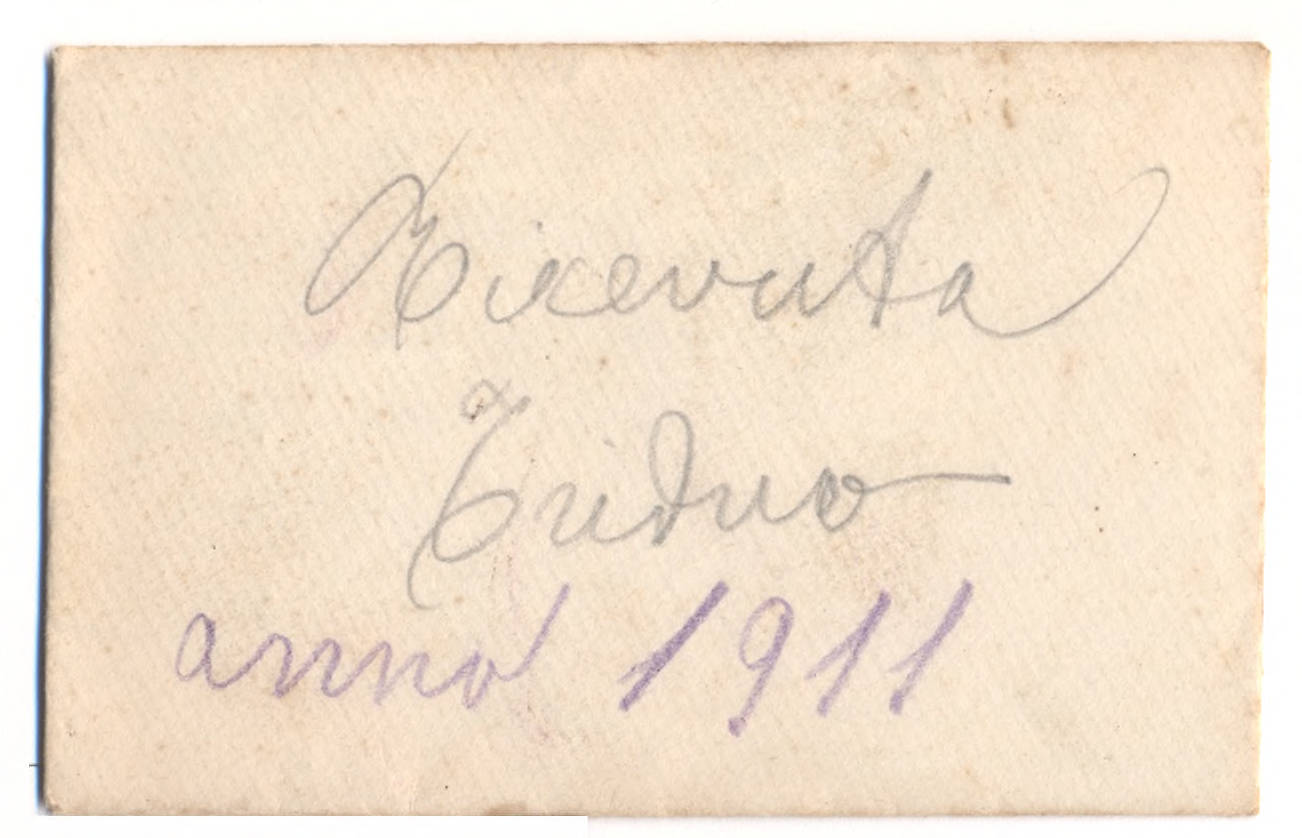 Ricevuta
Triduo
anno 1911